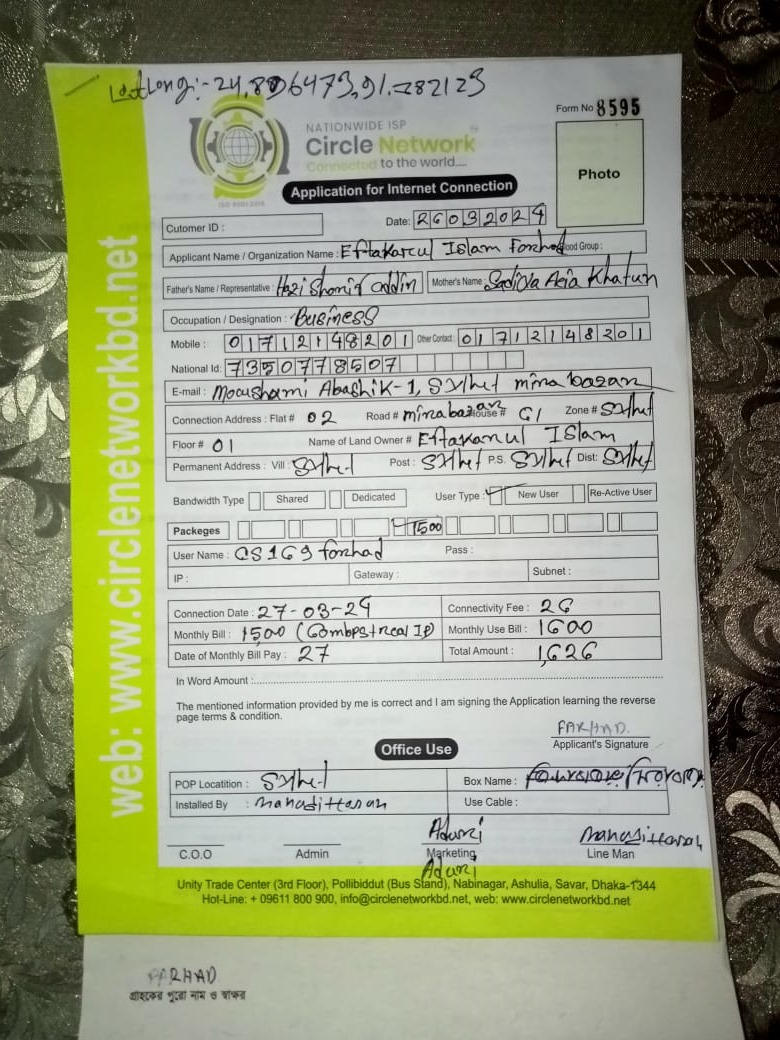 LatLong:- 24.896473,91.882123
Form No 8595
NATIONWIDE ISP
Circle Network
Connected to the world....
ISO 9001:2015
Photo
Application for Internet Connection
Cutomer ID : Date: 26032024
Applicant Name / Organization Name : Eftakarcul Islam Forhad ood Group :
Father's Name / Representative : Hazi Shomir uddin Mother's Name : Sadiya Asia Khatun
Occupation / Designation : Business
Mobile : 01712148201 Other Contact : 01712148201
National Id: 7350778507
E-mail : Moushami Abashik-1, Sylhet mina bazar
Connection Address : Flat # 02 Road # minabazar House # G1 Zone # Sylhet
Floor # 01 Name of Land Owner # Eftakarul Islam
Permanent Address : Vill : Sylhet Post : Sylhet P.S. Sylhet Dist: Sylhet
Bandwidth Type Shared Dedicated User Type : New User Re-Active User
Packeges 1500
User Name : CS169 forhad Pass :
IP : Gateway : Subnet :
Connection Date : 27-03-24 Connectivity Fee : 26
Monthly Bill : 1500 (60mbps+real IP) Monthly Use Bill : 1600
Date of Monthly Bill Pay : 27 Total Amount : 1,626
In Word Amount :
The mentioned information provided by me is correct and I am signing the Application learning the reverse
page terms & condition.
FARHAD
Applicant's Signature
Office Use
POP Locatition : Sylhet Box Name :
Installed By : Mahadi Hasan Use Cable :
Aduri Mahadi Hasan
C.O.O Admin Marketing Line Man
Aduri
Unity Trade Center (3rd Floor), Pollibiddut (Bus Stand), Nabinagar, Ashulia, Savar, Dhaka-1344
Hot-Line: + 09611 800 900, info@circlenetworkbd.net, web: www.circlenetworkbd.net
web: www.circlenetworkbd.net
FARHAD
গ্রাহকের পুরো নাম ও স্বাক্ষর